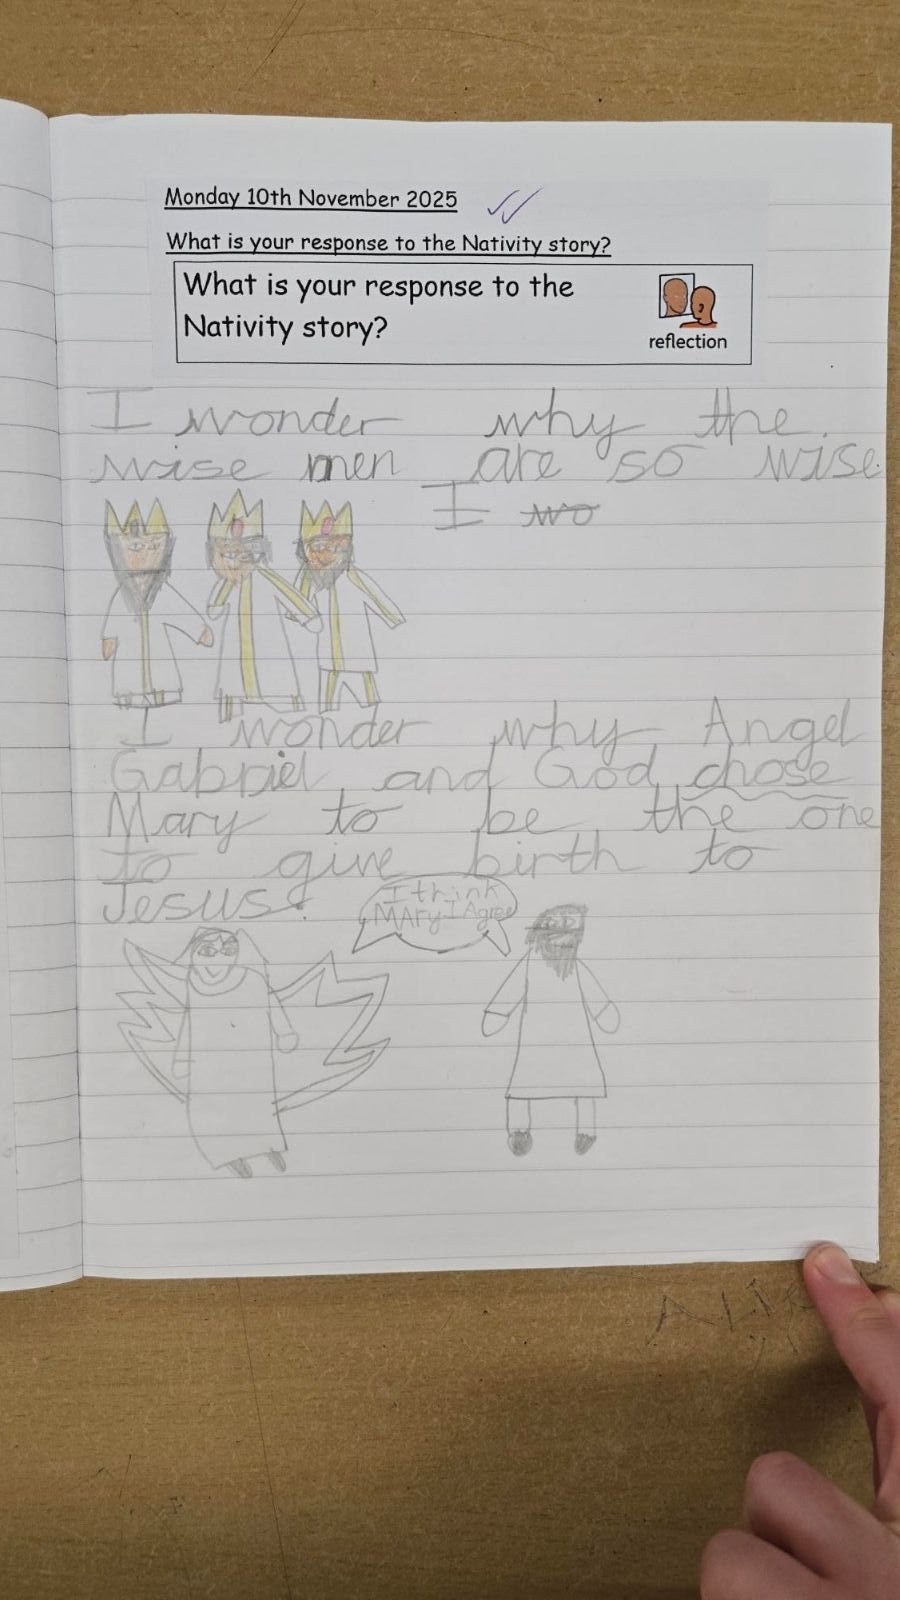 Monday 10th November 2025
What is your response to the Nativity story?
What is your response to the
Nativity story?
reflection
I wonder why the
wise men are so wise.
I wo
I wonder why Angel
Gabriel and God chose
Mary to be the one
to give birth to
Jesus.
I think
MAry I Agree